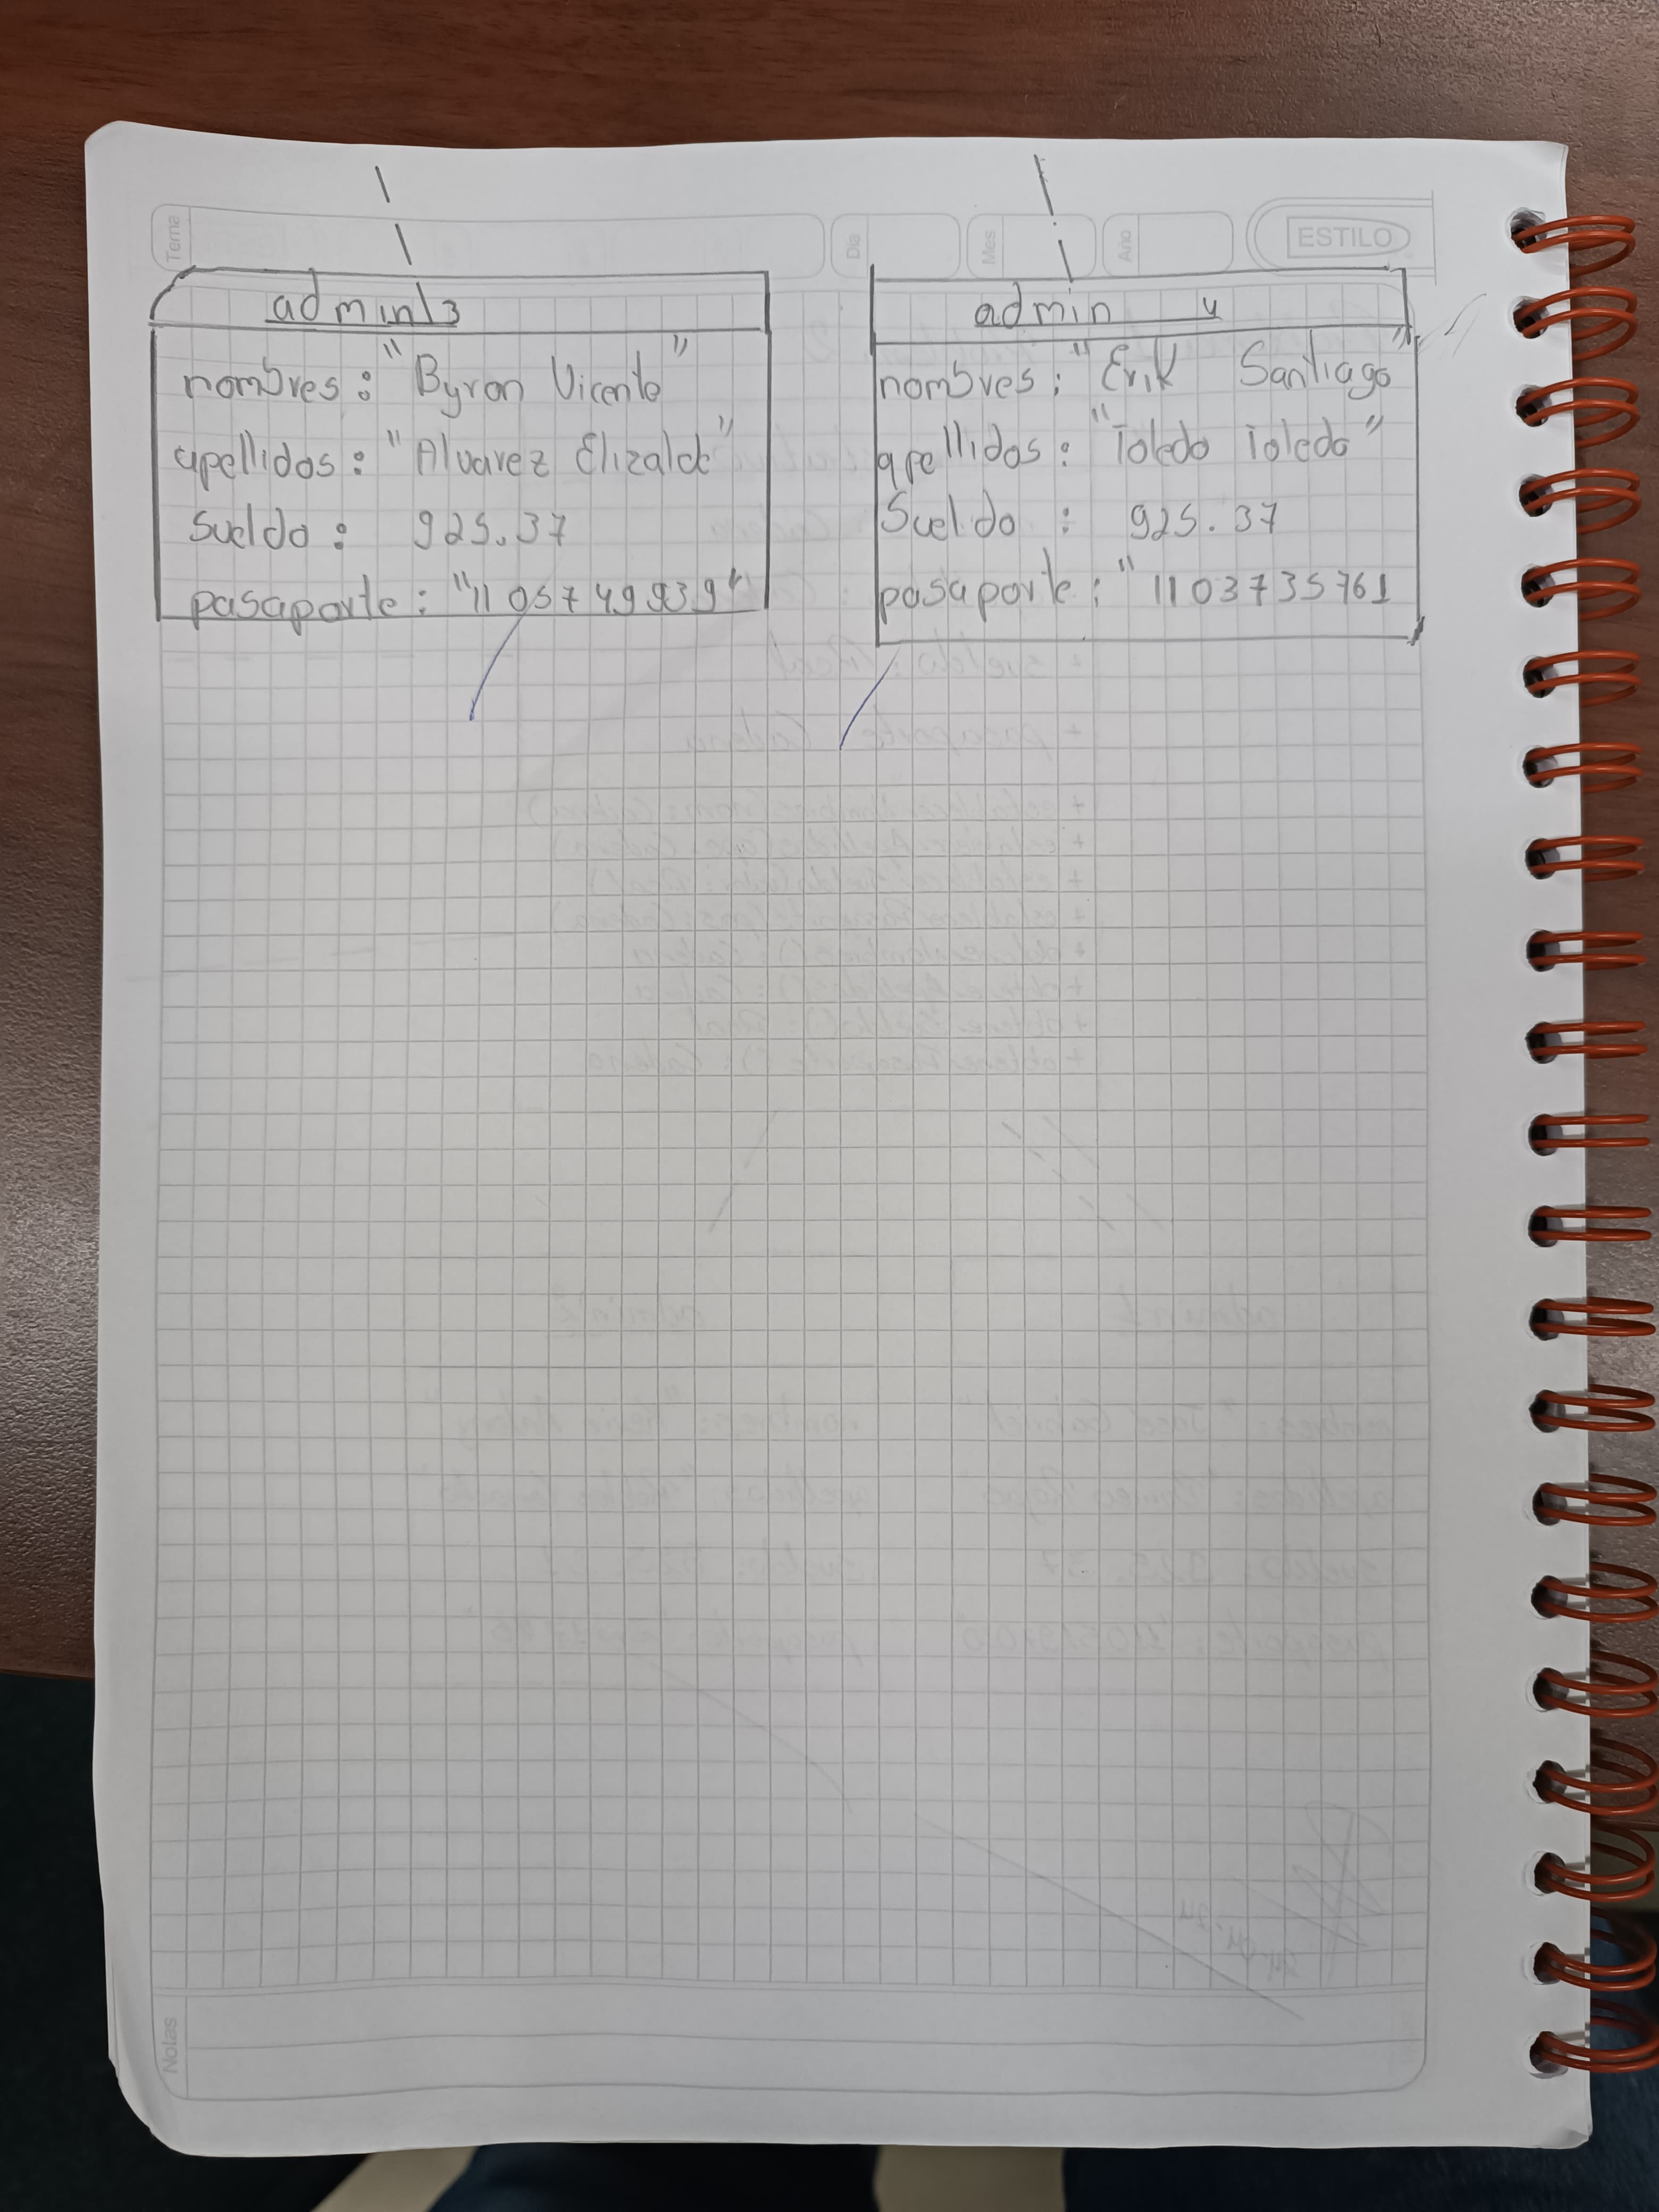 Tema
Día
Mes
Año
ESTILO
admin3
nombres: "Byron Vicente"
apellidos: "Alvarez Elizalde"
sueldo: 925.37
pasaporte: "1105749939"
admin 4
nombres: "Erik Santiago"
apellidos: "Toledo Toledo"
Sueldo: 925.37
pasaporte: "1103735761
Notas